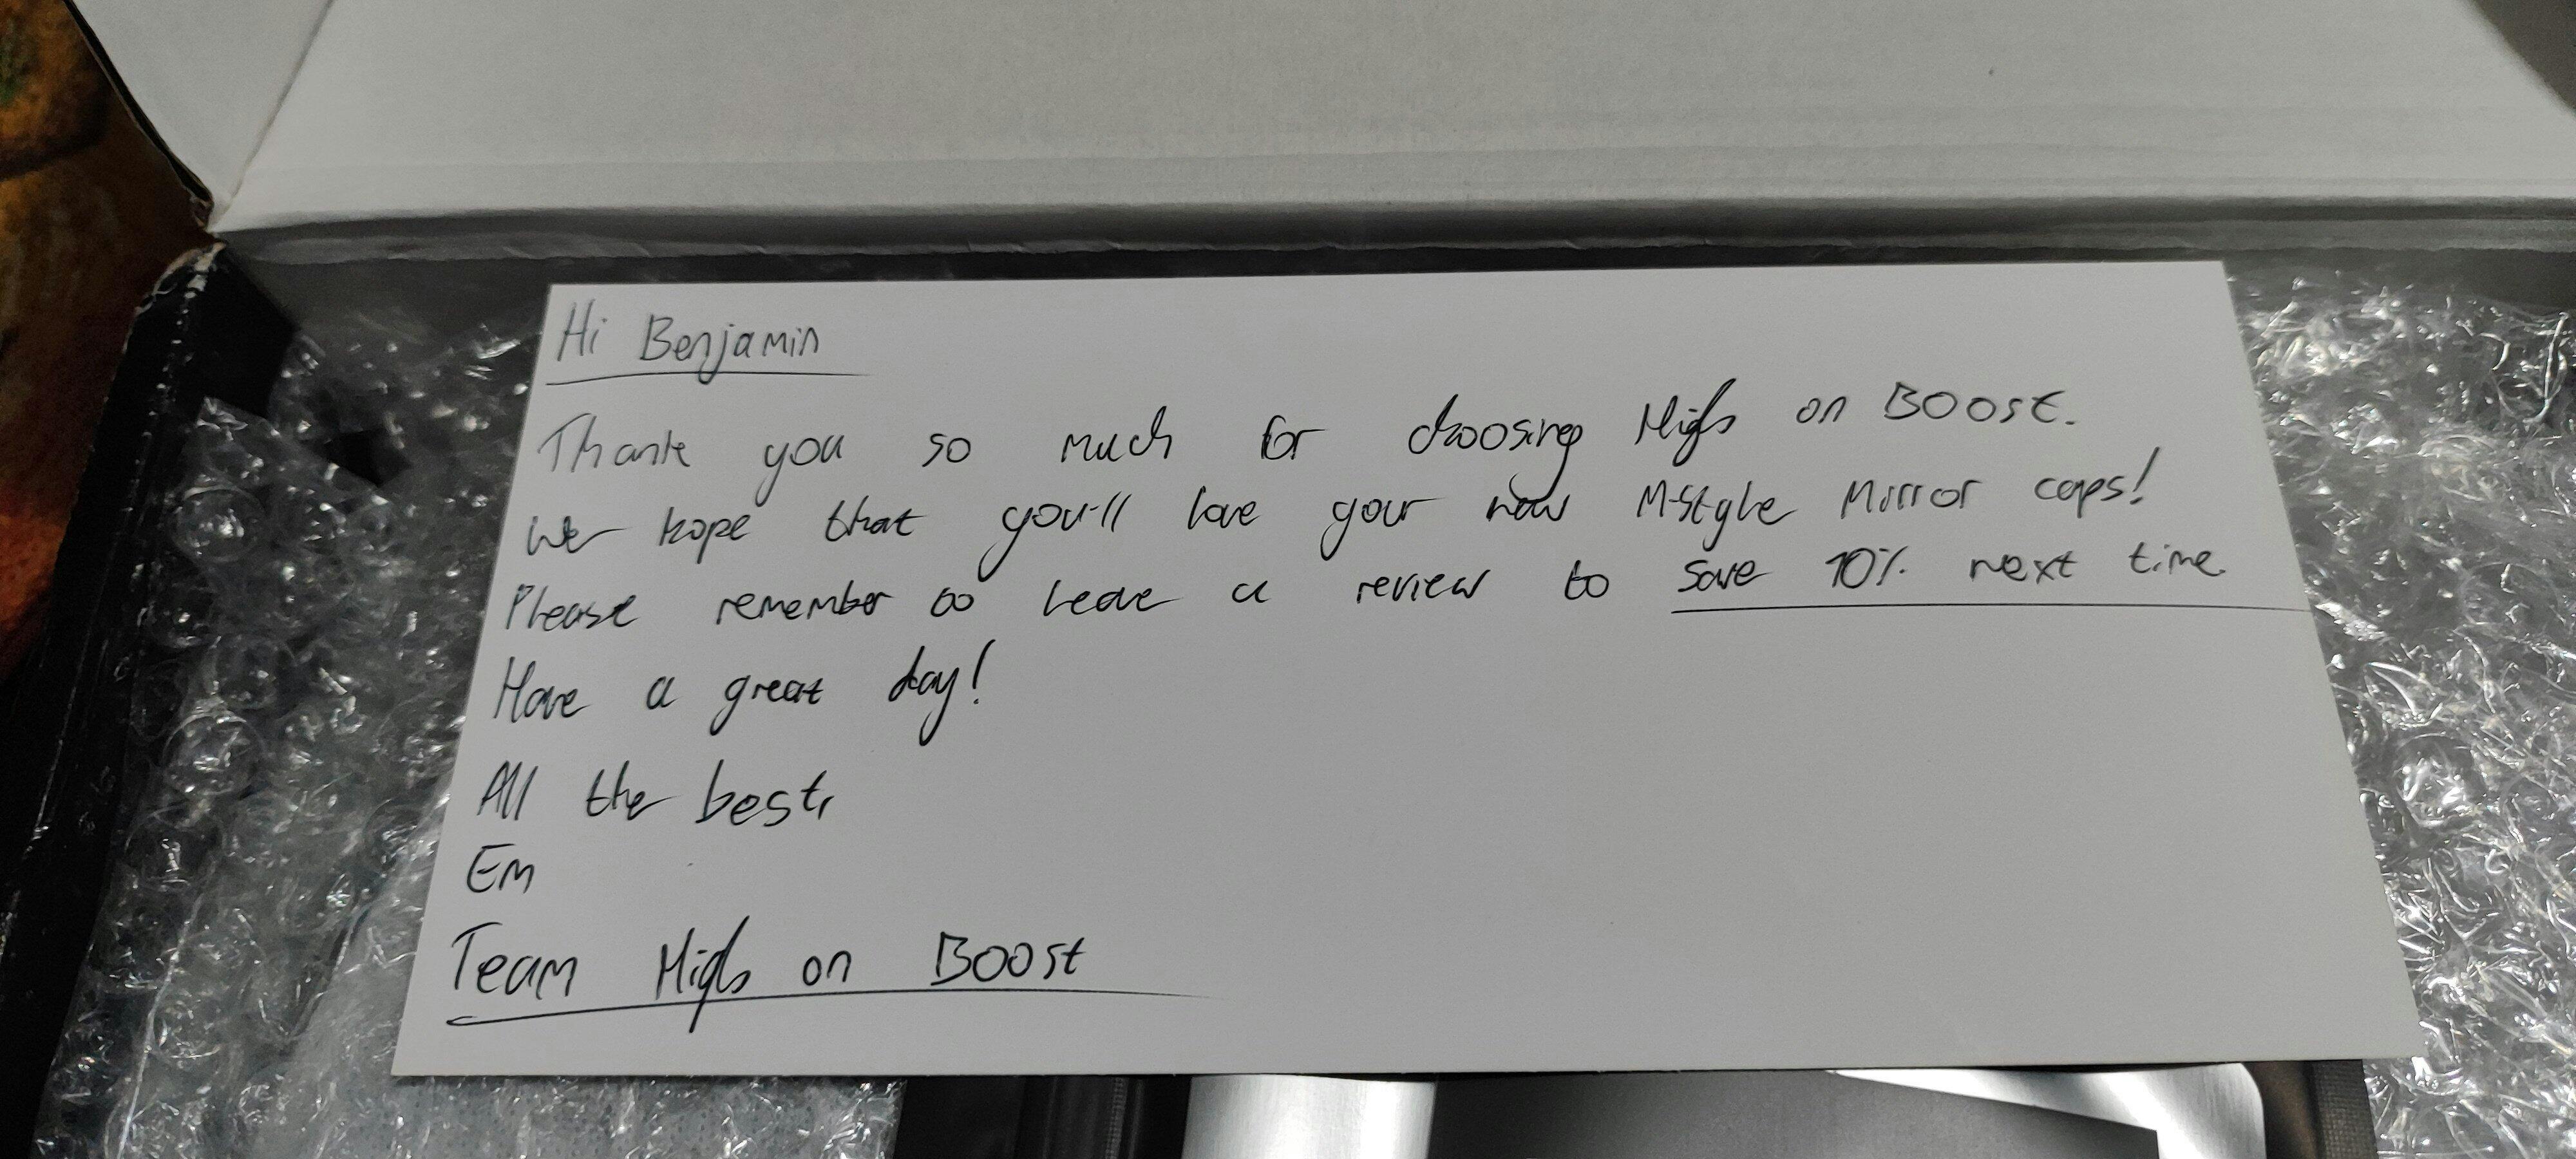 Hi Benjamin
Thank you so much for choosing High on Boost.
We hope that you'll love your new M-Style Mirror caps!
Please remember to leave a review to save 10% next time
Have a great day!
All the best,
Em
Team High on Boost